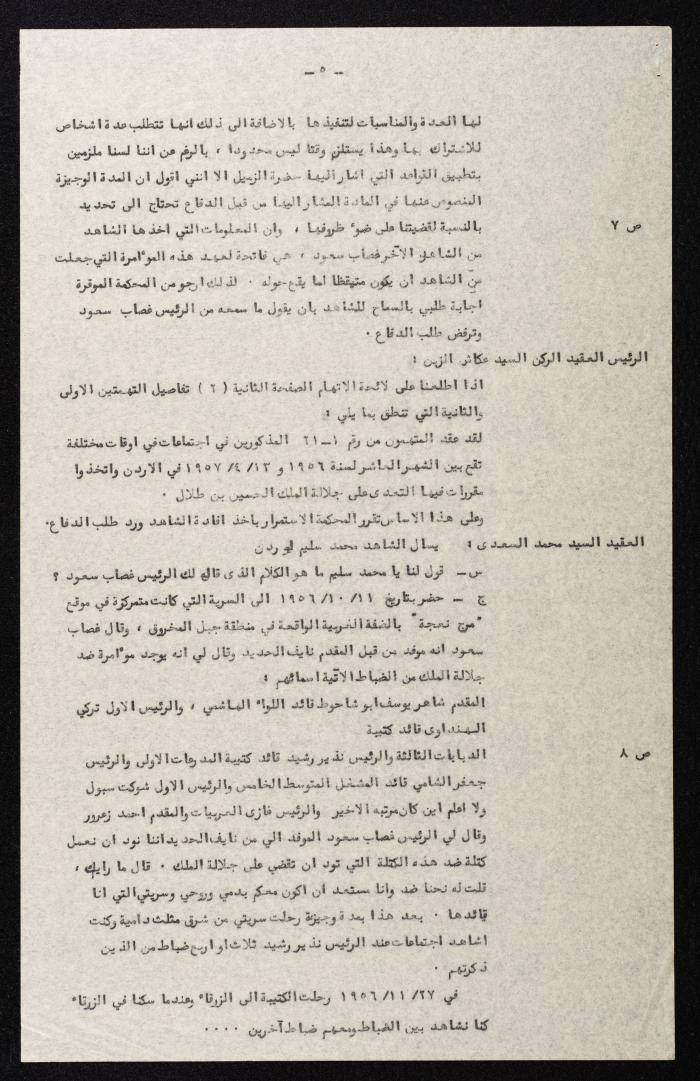 - ٥ -
لها العدة والمناسبات لتنفيذها بالاضافة الى ذلك انها تتطلب عدة اشخاص
للاشتراك بها وهذا يستلزم وقتا ليس محدودا ، بالرغم عن اننا لسنا ملزمين
بتطبيق القواعد التي اشار اليها حضرة الزميل الا انني اقول ان المدة الوجيزة
المنصوص عنها في المادة المشار اليها من قبل الدفاع تحتاج الى تحديد
بالنسبة لقضيتنا على ضوء ظروفها ، وان المعلومات التي اخذها الشاهد
ص ٧
من الشاهد الآخر قصاب سعود ، هي فاتحة لعهد هذه المؤامرة التي جعلت
من الشاهد ان يكون متيقظا لما يقع حوله . لذلك ارجو من المحكمة الموقرة
اجابة طلبي بالسماح للشاهد بان يقول ما سمعه من الرئيس قصاب سعود
وترفض طلب الدفاع .
الرئيس العقيد الركن السيد عكاش الزبن :
اذا اطلعنا على لائحة الاتهام الصفحة الثانية ( ٢ ) تفاصيل التهمتين الاولى
والثانية التي تنطق بما يلي :
لقد عقد المتهمون من رقم ١-٢١ المذكورين في اجتماعات في اوقات مختلفة
تقع بين الشهر العاشر لسنة ١٩٥٦ و ١٣/ ٤/ ١٩٥٧ في الاردن واتخذوا
مقررات فيها التعدى على جلالة الملك الحسين بن طلال .
وعلى هذا الاساس تقرر المحكمة الاستمرار باخذ افادة الشاهد ورد طلب الدفاع.
العقيد السيد محمد السعدى : يسال الشاهد محمد سليم ابو ردن
س - قول لنا يا محمد سليم ما هو الكلام الذى قاله لك الرئيس قصاب سعود ؟
ج - حضر بتاريخ ١١/ ١٠/ ١٩٥٦ الى السرية التي كانت متمركزة في موقع
"مرج نعجة" بالضفة الغربية الواقعة في منطقة جبل المخروق ، وقال قصاب
سعود انه موفد من قبل المقدم نايف الحديد وقال لي انه يوجد مؤامرة ضد
جلالة الملك من الضباط الآتية اسمائهم :
المقدم شاهر يوسف ابو شاحوط قائد اللواء الهاشمي ، والرئيس الاول تركي
الهنداوى قائد كتيبة
الدبابات الثالثة والرئيس نذير رشيد قائد كتيبة المدرعات الاولى والرئيس
ص ٨
جعفر الشامي قائد المشغل المتوسط الخامس والرئيس الاول شوكت سبول
ولا اعلم اين كان مرتبه الاخير والرئيس فازى العربيات والمقدم احمد زعرور
وقال لي الرئيس قصاب سعود الموفد الي من نايف الحديد اننا نود ان نعمل
كتلة ضد هذه الكتلة التي تود ان تقضي على جلالة الملك . قال ما رايك ،
قلت له نحنا ضد وانا مستعد ان اكون معكم بدمي وروحي وسريتي التي انا
قائدها . بعد هذا بمدة وجيزة رحلت سريتي من شرق مثلث دامية وكنت
اشاهد اجتماعات عند الرئيس نذير رشيد ثلاث او اربع ضباط من الذين
ذكرتهم .
في ٢٧/ ١١/ ١٩٥٦ رحلت الكتيبة الى الزرقاء وعندما سكنا في الزرقاء
كنا نشاهد بين الضباط ومعهم ضباط آخرين ....